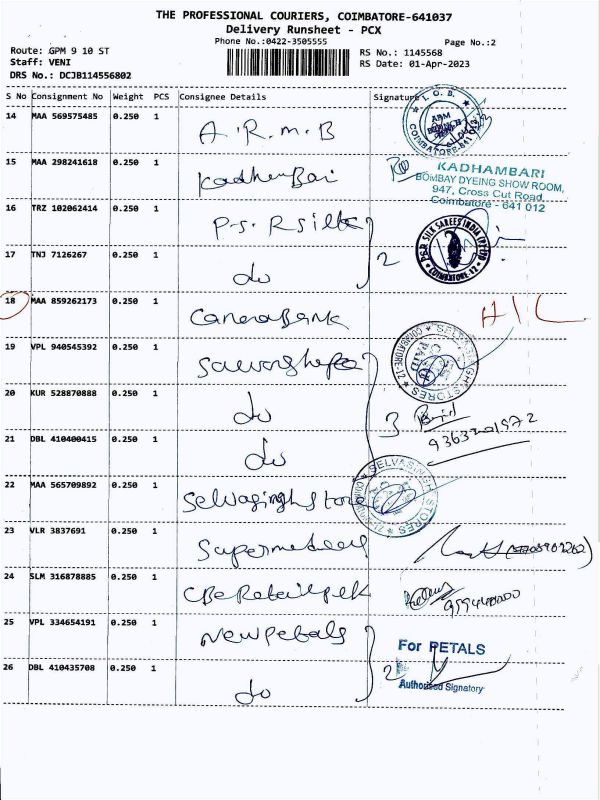 THE PROFESSIONAL COURIERS, COIMBATORE-641037
Delivery Runsheet - PCX
Phone No.:0422-3505555
Page No.:2
Route: GPM 9 10 ST
RS No.: 1145568
Staff: VENI
RS Date: 01-Apr-2023
DRS No.: DCJB114556802
S No Consignment No Weight PCS Consignee Details Signature
14 MAA 569575485 0.250 1 A.R.M.B
I. O. B.
COIMBATORE-641 012
15 MAA 298241618 0.250 1 KadhenBari
KADHAMBARI
BOMBAY DYEING SHOW ROOM,
947, Cross Cut Road,
Coimbatore - 641 012
16 TRZ 102062414 0.250 1 P.S.R silk
P.S.R SILK SAREES INDIA (P) LTD
COIMBATORE-12
17 TNJ 7126267 0.250 1 do 2
18 MAA 859262173 0.250 1 CaneraBank
19 VPL 940545392 0.250 1
SELVASINGH STORES
COIMBATORE-12
20 KUR 528870888 0.250 1 do 3
21 DBL 410400415 0.250 1 do
22 MAA 565709892 0.250 1 Selvasingh Store
SELVASINGH STORES
23 VLR 3837691 0.250 1
24 SLM 316878885 0.250 1
25 VPL 334654191 0.250 1 New Petals
For PETALS
26 DBL 410435708 0.250 1 do 2
Authorised Signatory